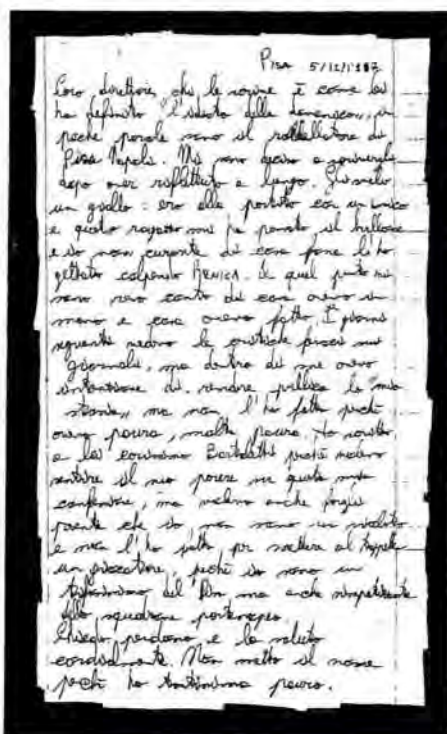 PISA 5/12/1982
Caro direttore, chi le scrive è come lei
ha definito "l'idiota della domenica", in
poche parole sono il
Pisa Napoli. Mi sono deciso a scriverle
dopo aver riflettuto a lungo.
un giallo: ero alla partita con un amico
e questo ragazzo mi ha passato il bullone
e io non curante di cosa fosse l'ho
gettato colpendo A quel punto mi
sono reso conto di cosa avevo in
mano e cosa avevo fatto. I giorni
seguenti vedevo le critiche sui
giornali, ma dentro di me avevo
intenzione di rendere pubblica la "mia
storia" ma non l'ho fatto perché
avevo paura, molta paura. Ho scritto
a lei perché volevo
sentire il suo parere su questa mia
confessione, ma volevo anche
presente che io non sono un violento
e non l'ho fatto per mettere al tappeto
un giocatore, perché io sono un
tifosissimo del ma anche simpatizzante
dello squadrone partenopeo.
Chiedo perdono e la saluto
cordialmente. Non metto il nome
perché ho tantissima paura.